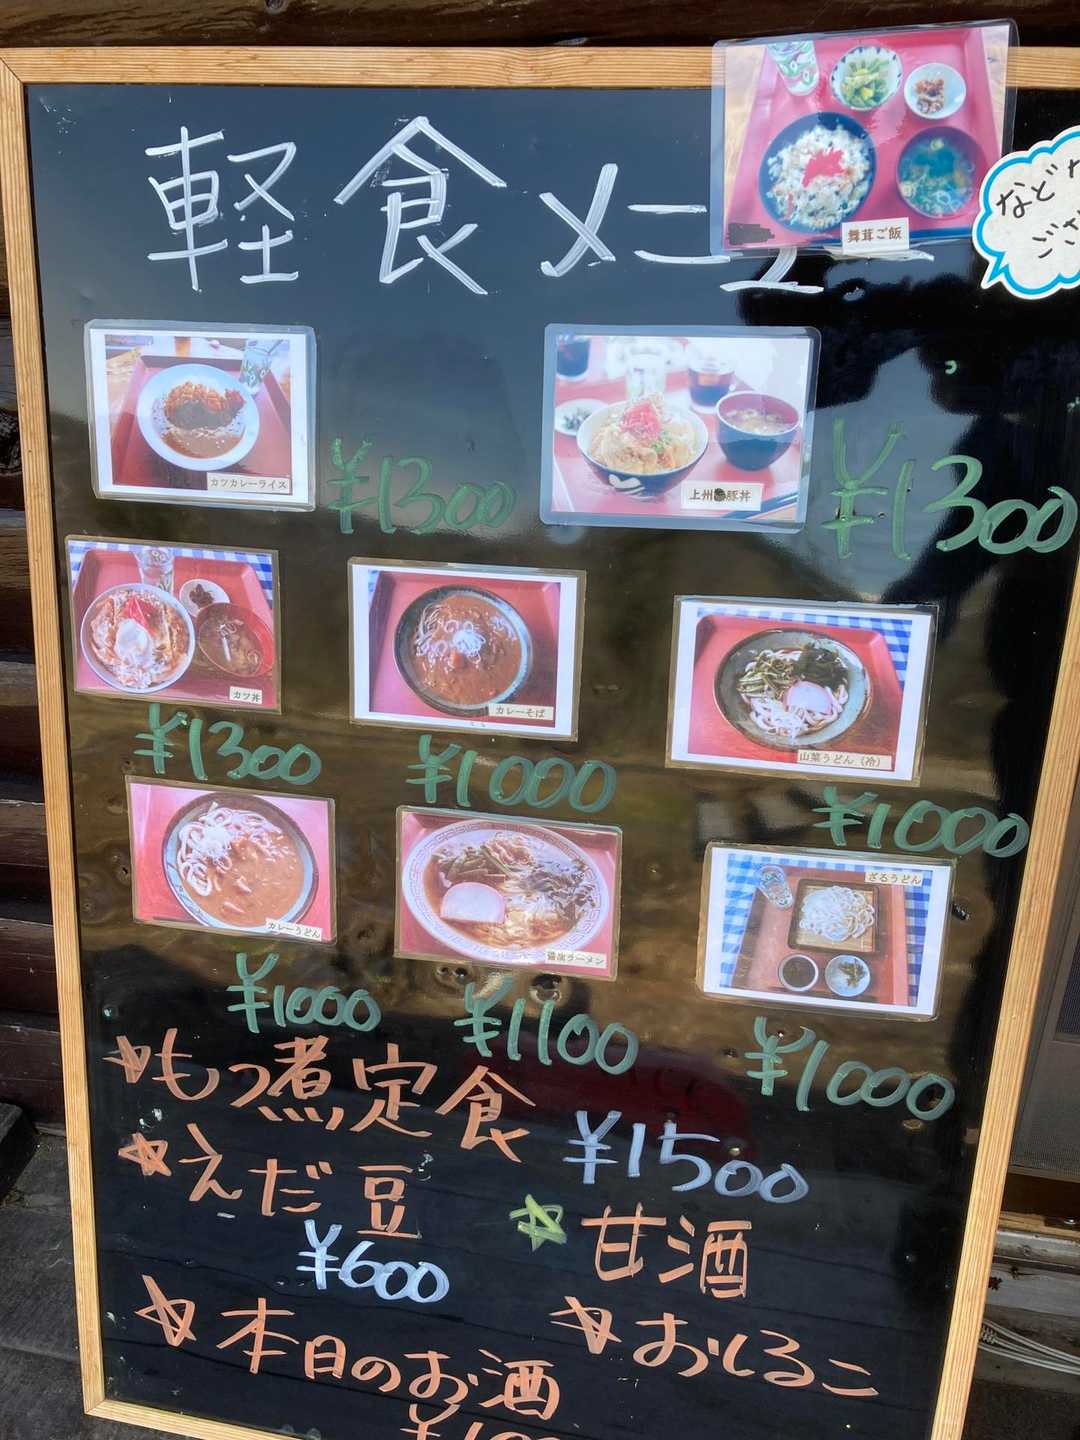 軽食メニュー
舞茸ご飯
など
カツカレーライス
¥1300
上州豚丼
¥1300
カツ丼
¥1300
カレーそば
¥1000
山菜うどん(冷)
¥1000
カレーうどん
¥1000
ラーメン
¥1100
ざるうどん
¥1000
☆もつ煮定食
¥1500
☆えだ豆
¥600
☆甘酒
☆おしるこ
☆本日のお酒